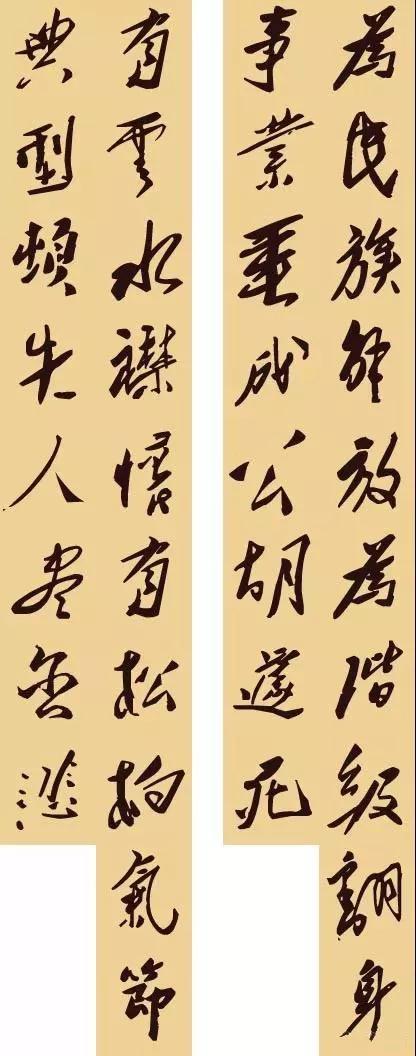 為民族解放為階級翻身
事業垂成公胡遽死
有雲水襟懷有松柏氣節
典型頓失人盡含悲